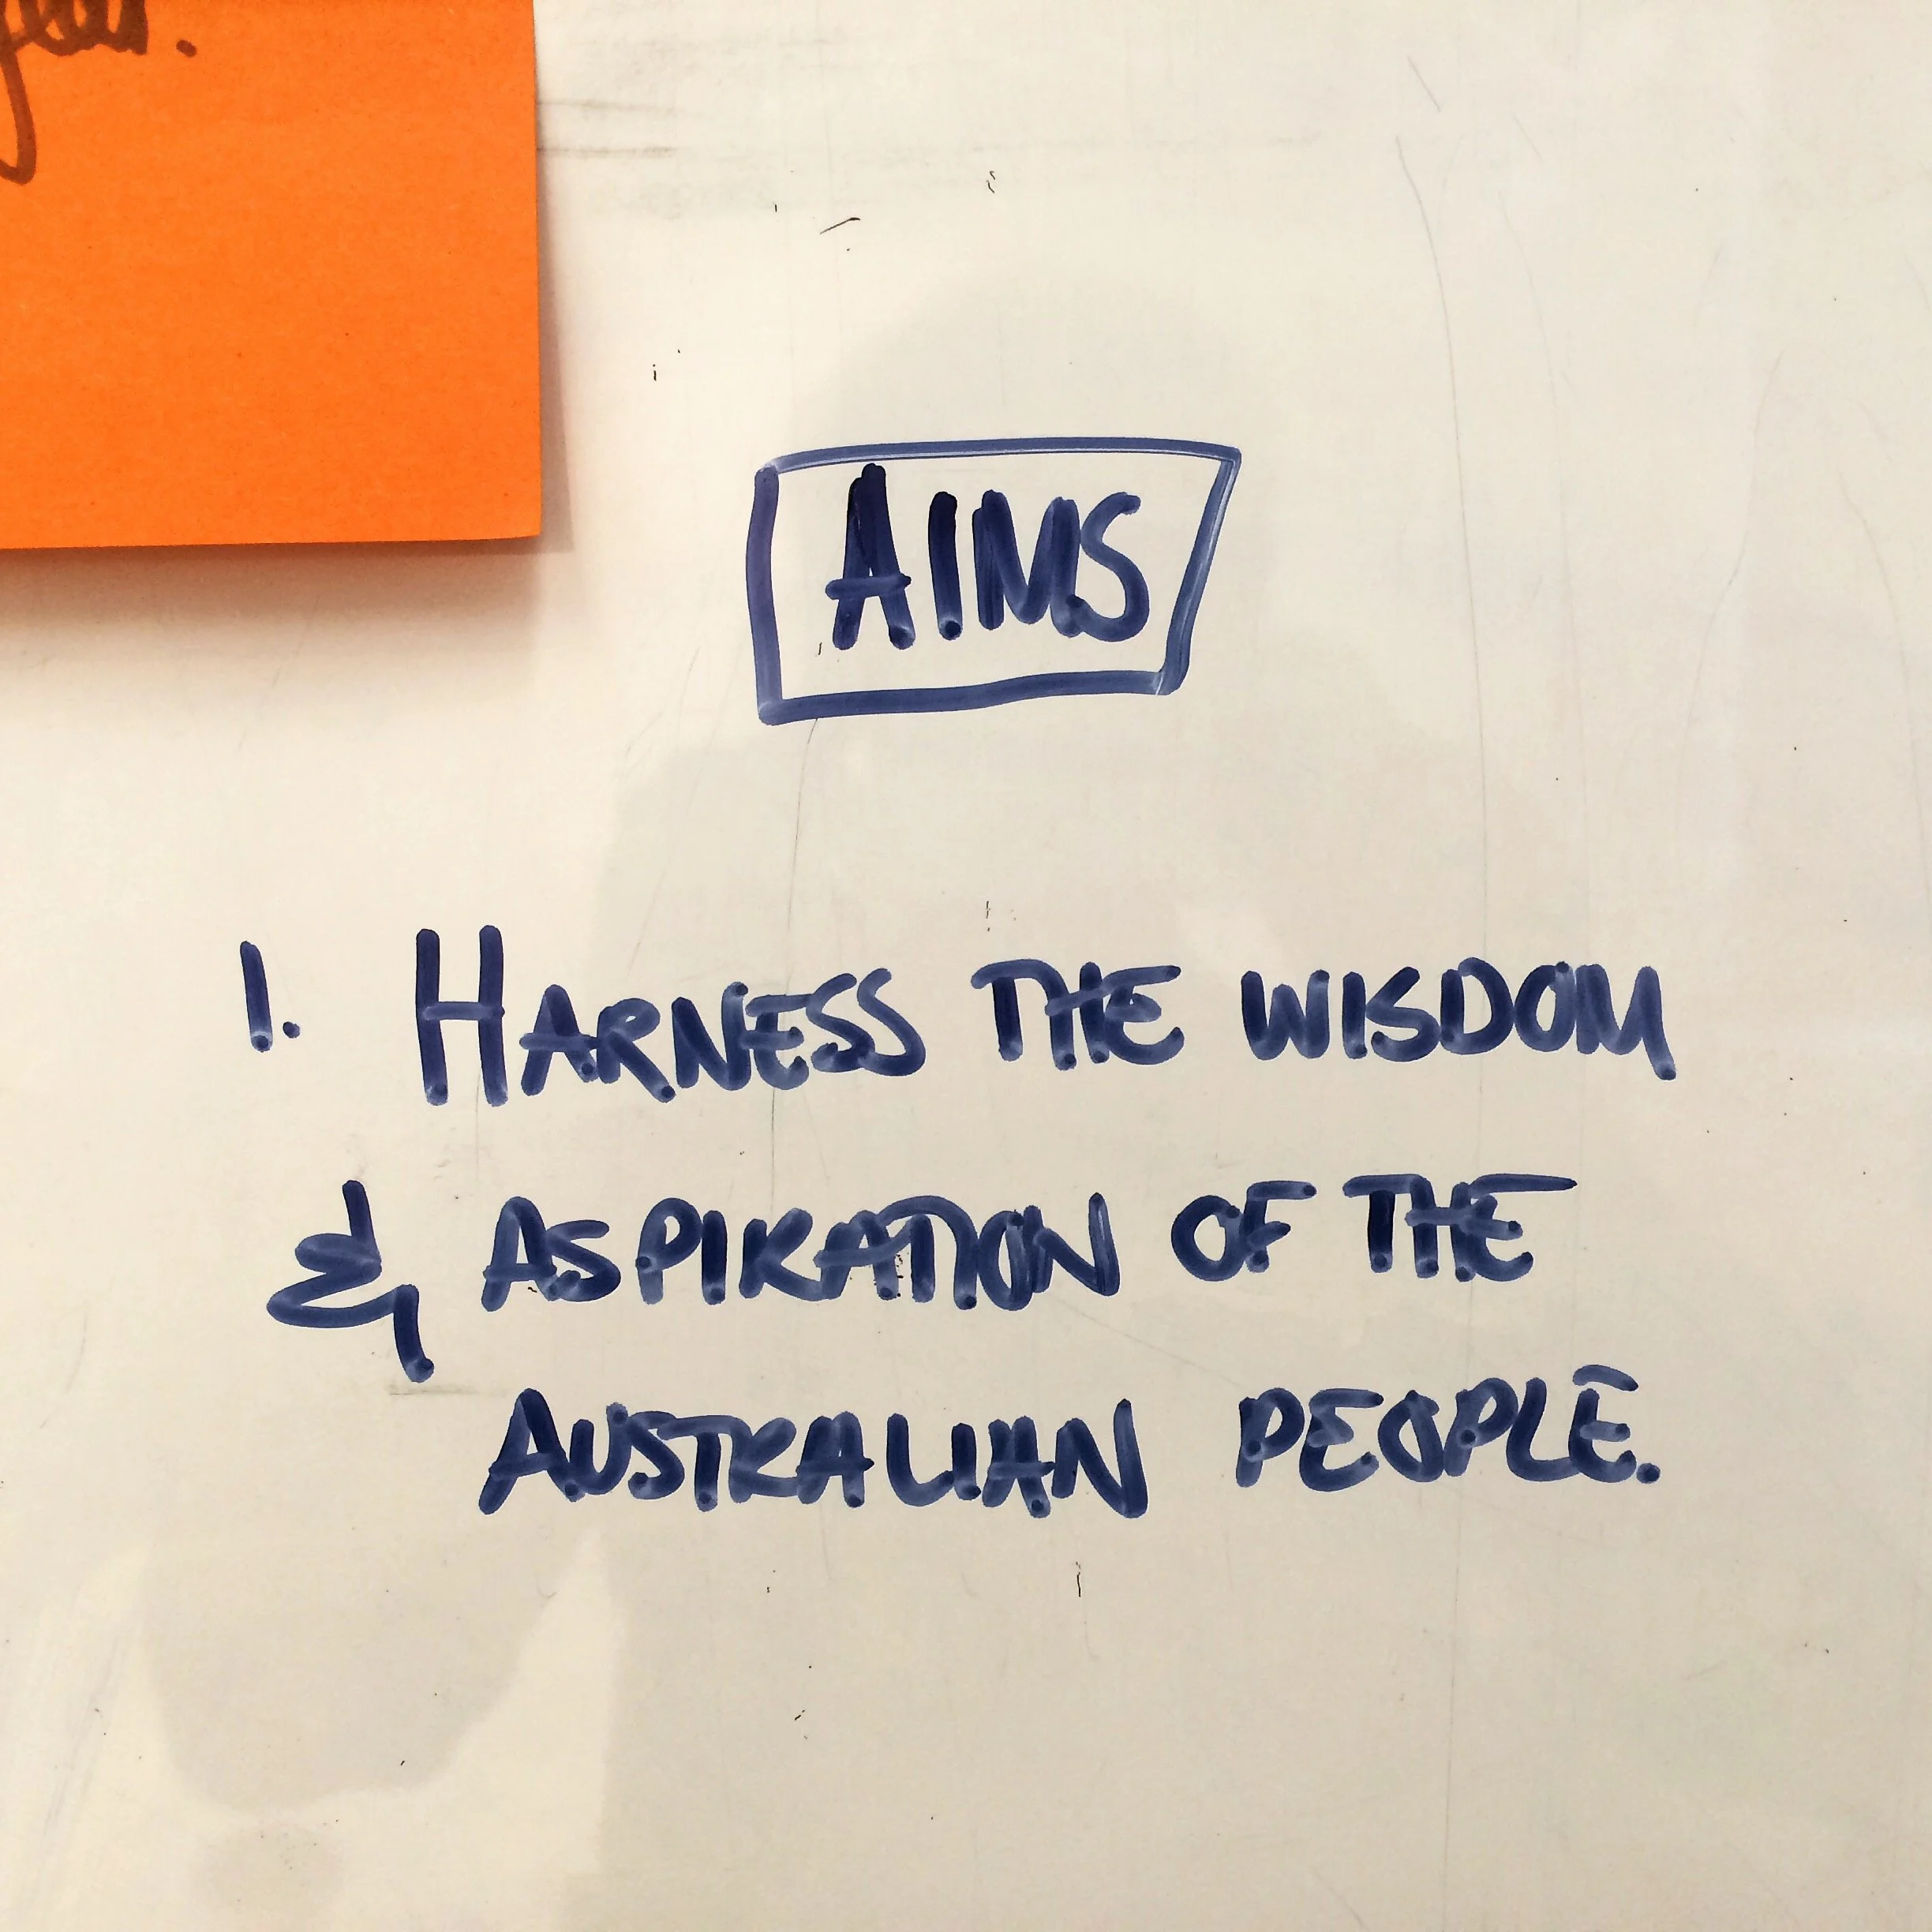 AIMS
1. HARNESS THE WISDOM
& ASPIRATION OF THE
AUSTRALIAN PEOPLE.